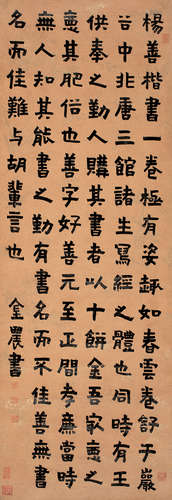 楊善楷書一卷極有姿趣如春雲卷舒于巖
谷中非唐三館諸生寫經之體也同時有王
供奉之勤人購其書者以十餅金吾家惡之
惡其肥俗也善字好善元至正間孝廉當時
無人知其能書之勤有書名而不佳善無書
名而佳難與胡輩言也 金農書